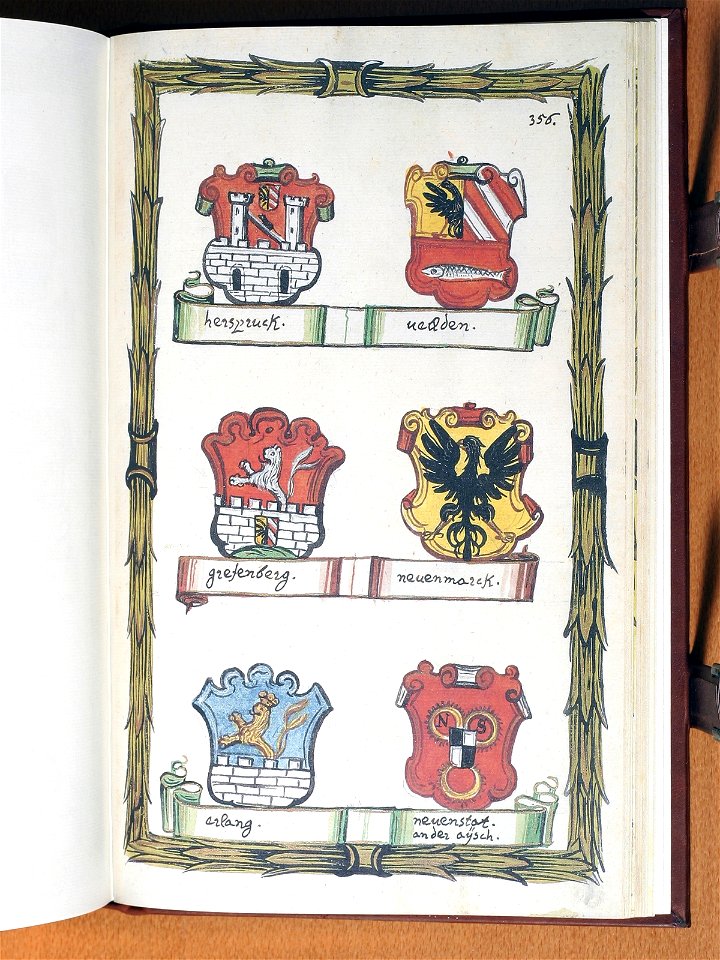 356.
herspruck.
uelden.
grefenberg.
neuenmarck.
erlang.
N S
neuenstat.
an der aÿsch.